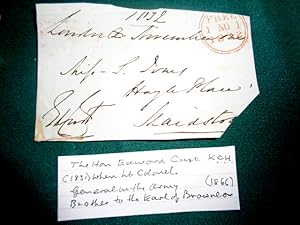 1832
London November
Miss S. Jones
Hayle Place
Maidstone
FREE
The Hon Edward Cust KCH
(1831) when Lt Colonel.
General in the Army (1866)
Brother to the Earl of Brownlow